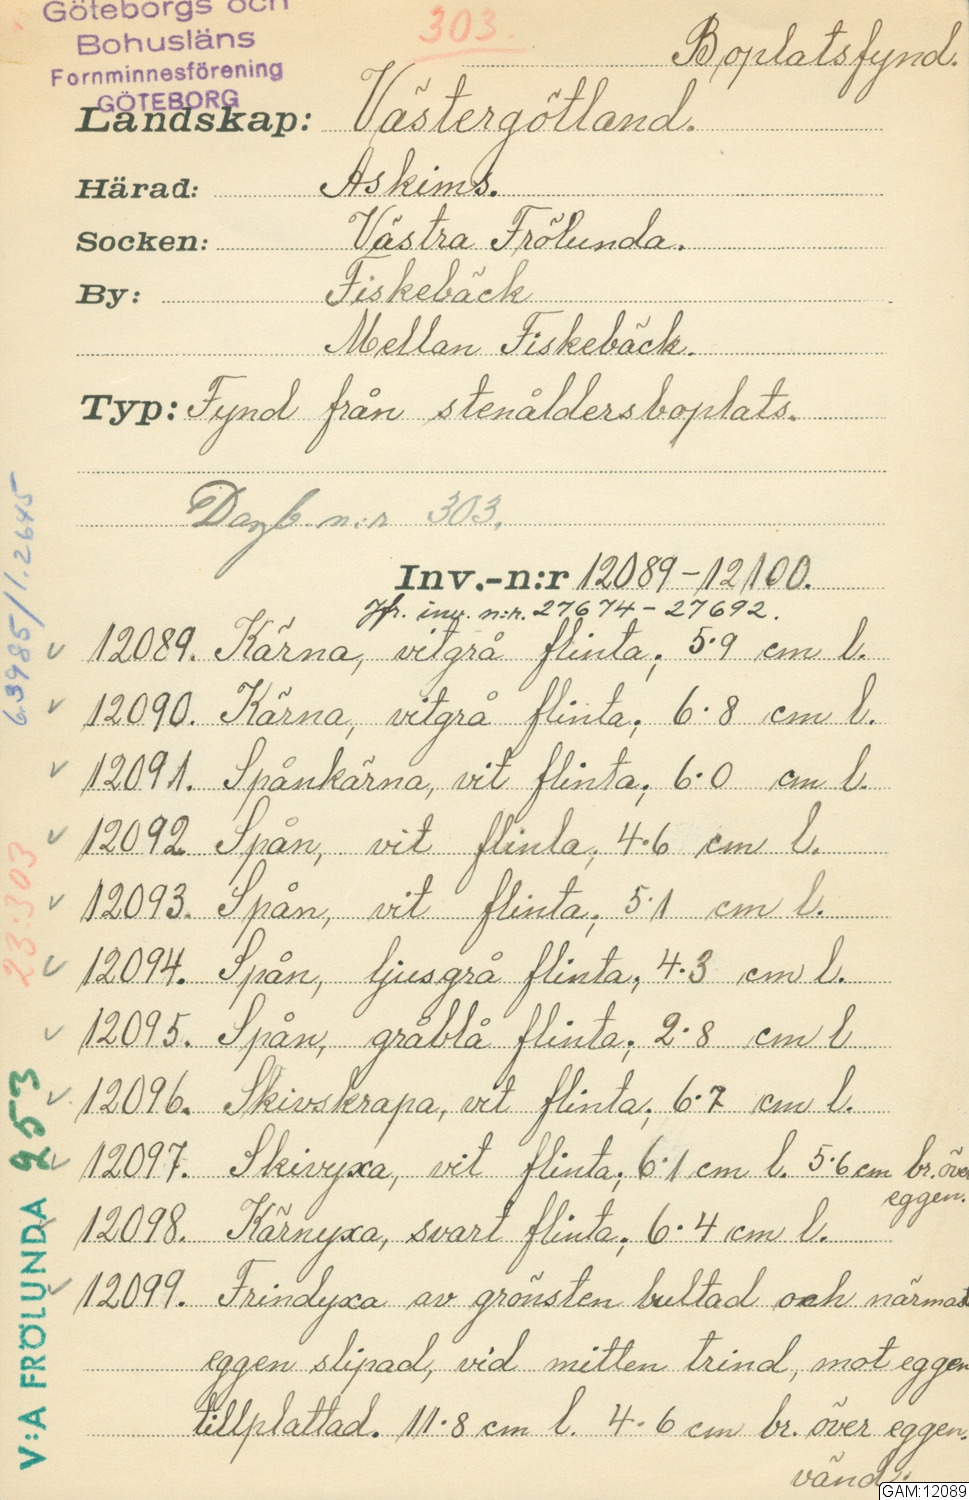 Göteborgs och
Bohusläns
Fornminnesförening
GÖTEBORG
303.
Boplatsfynd.
Landskap: Västergötland.
Härad: Askims.
Socken: Västra Frölunda.
By: Fiskebäck
Mellan Fiskebäck.
Typ: Fynd från stenåldersboplats.
Dagb. n:r 303.
Inv.-n:r 12089-12100.
Jfr. inv. n:r. 27674-27692.
12089. Kärna, vitgrå flinta; 5.9 cm l.
12090. Kärna, vitgrå flinta; 6.8 cm l.
12091. Spånkärna, vit flinta; 6.0 cm l.
12092 Spån, vit flinta; 4.6 cm l.
12093. Spån, vit flinta; 5.1 cm l.
12094. Spån, ljusgrå flinta; 4.3 cm l.
12095. Spån, gråblå flinta; 2.8 cm l
12096. Skivskrapa, vit flinta; 6.7 cm l.
12097. Skivyxa, vit flinta; 6.1 cm l. 5.6 cm br. över
eggen.
12098. Kärnyxa, svart flinta; 6.4 cm l.
12099. Trindyxa av grönsten bultad och närmast
eggen slipad, vid mitten trind, mot eggen
tillplattad. 11.8 cm l. 4.6 cm br. över eggen.
vänd.
6.3985/1.2645
23:303
V:A FRÖLUNDA 253
GAM:12089